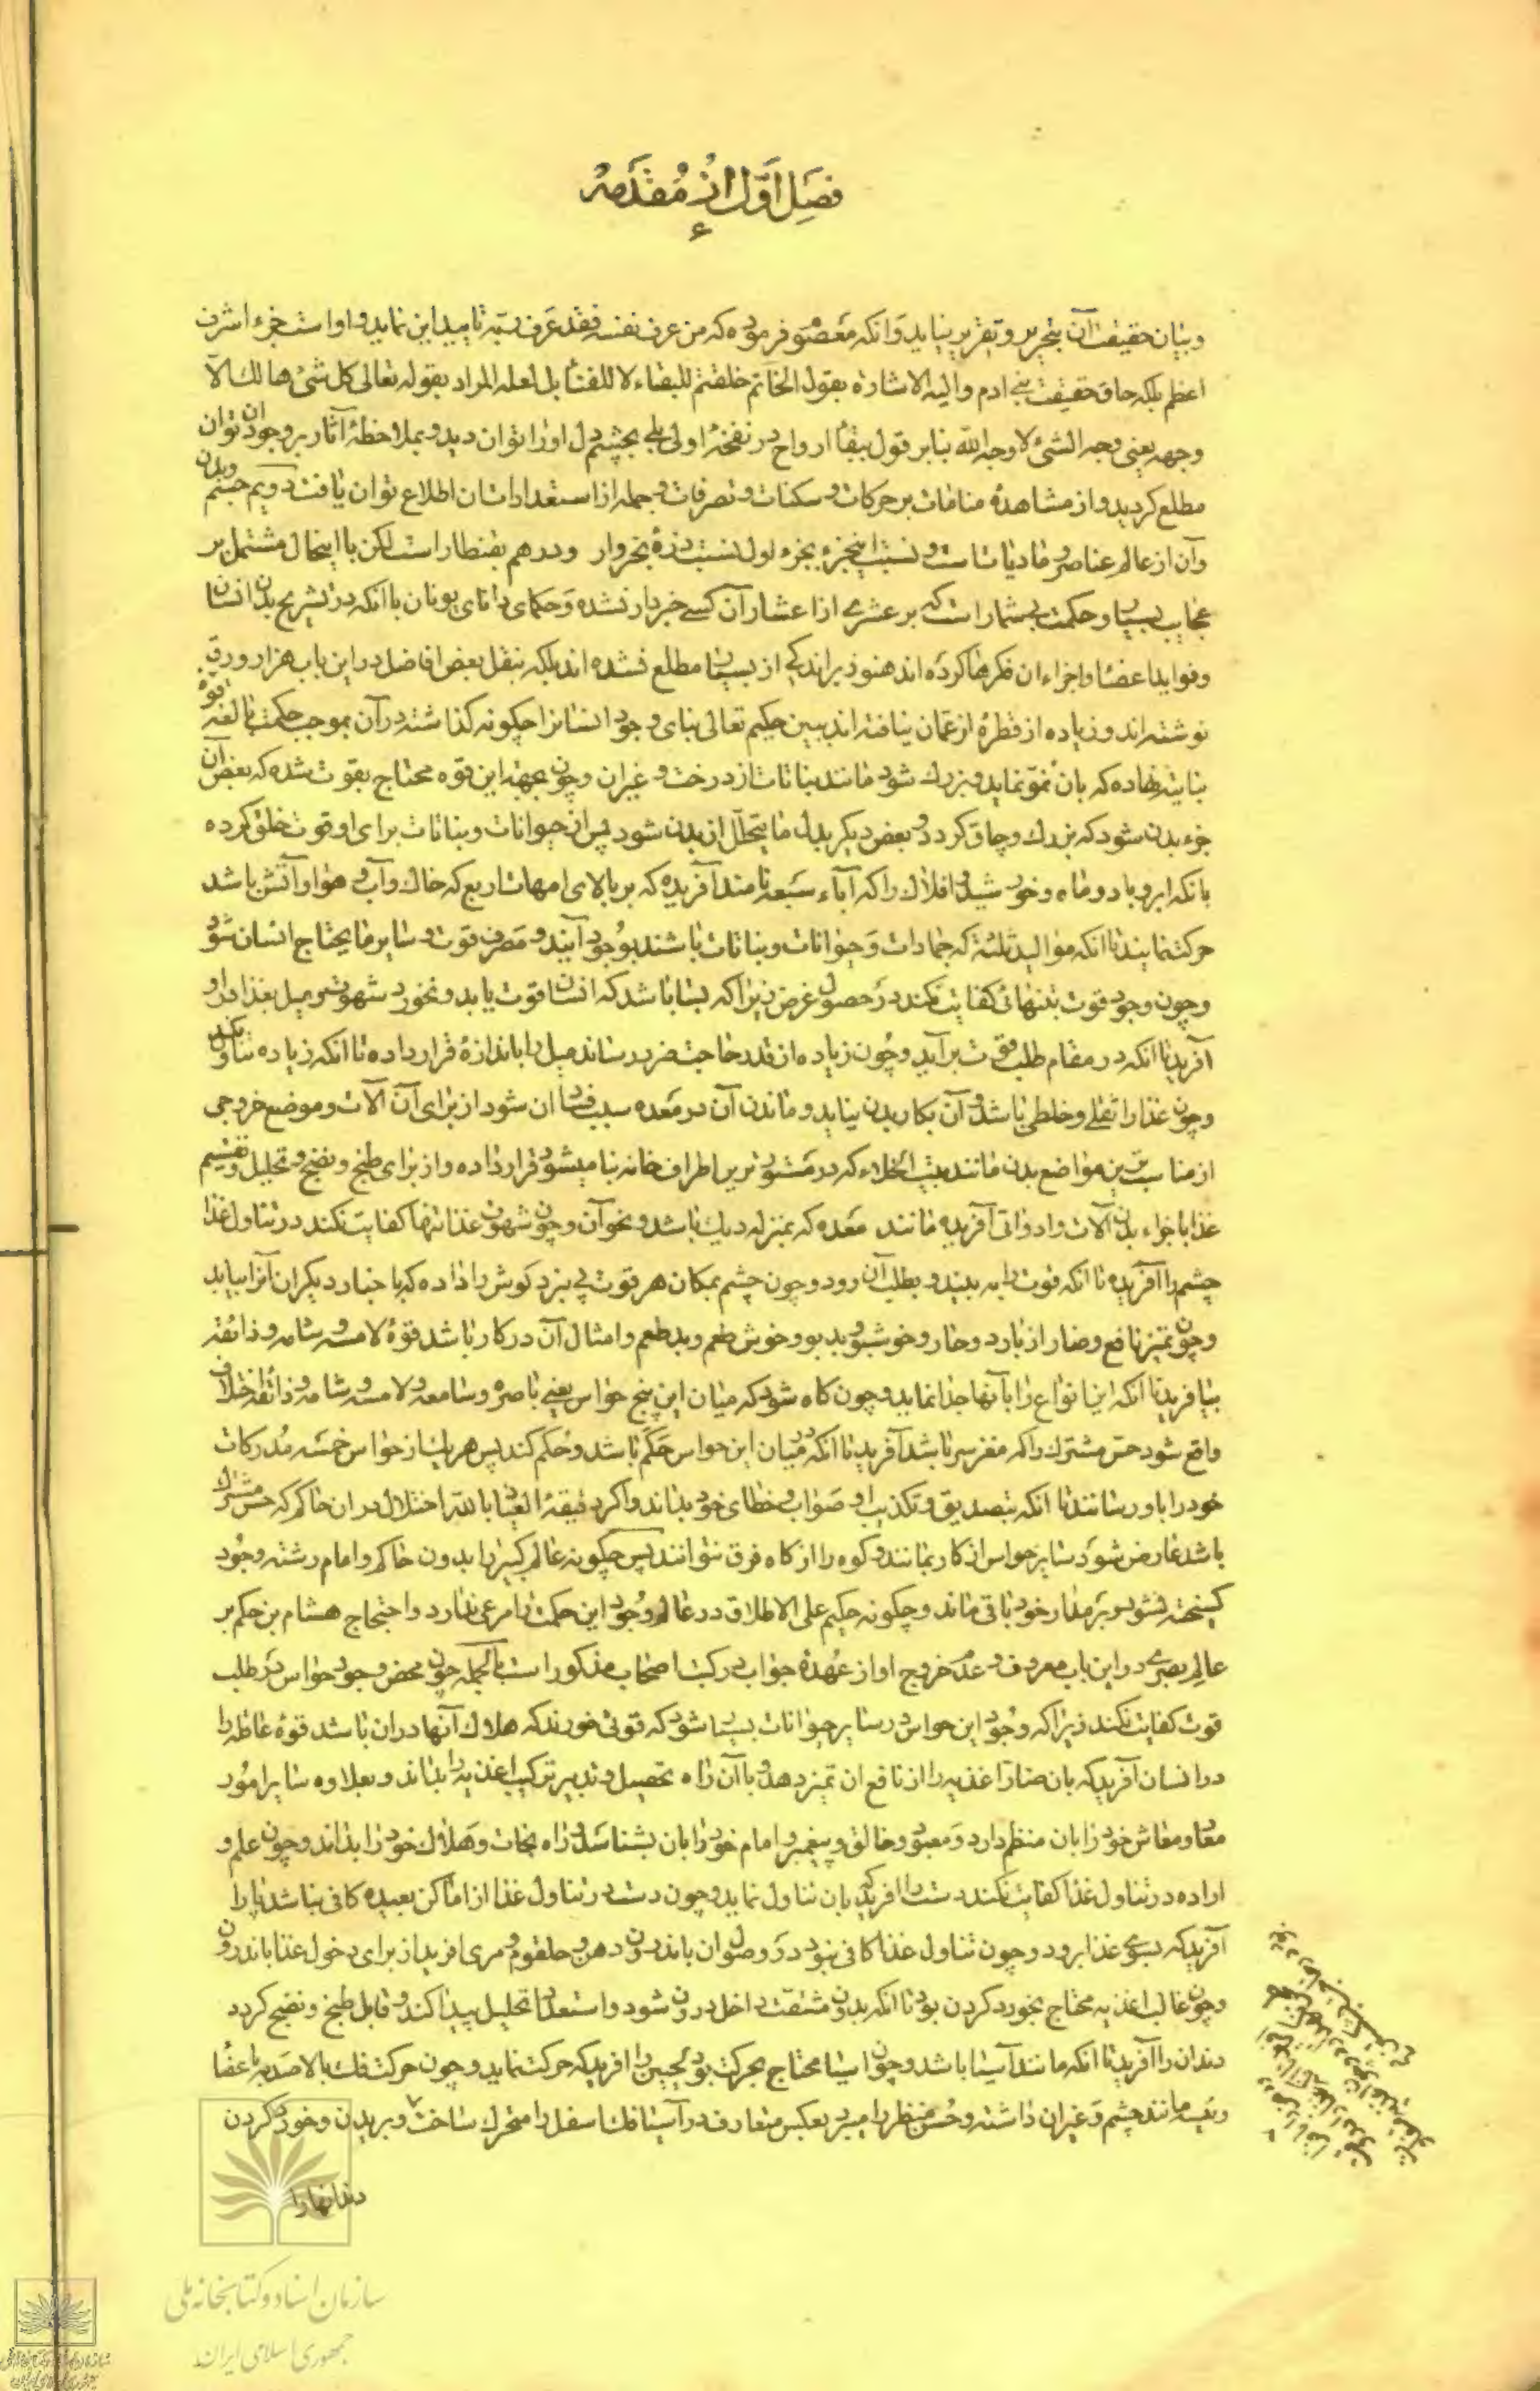 فصل اول از مقدمه
۶
و بیان حقیقت آن بتحریر و تقریر نیاید و آنکه معصوم فرموده که من عرف نفسه فقد عرف ربه تایید این نماید و او است جزء اشرف
اعظم بلکه حاق حقیقت بنی ادم و الیه الاشاره بقول الخاتم خلقتم للبقاء لا للفناء بل لعله المراد بقوله تعالی کل شیء هالک الا
وجهه یعنی وجه الشیء لا وجه الله بنابر قول ببقاء ارواح در نفخهٔ اولی بلی بچشم دل او را توان دید و بملاحظهٔ آثار بر وجود ان توان
مطلع کردید و از مشاهدهٔ منامات بر حرکات و سکنات و تصرفات و جمله از استعدادات ان اطلاع توان یافت دویم جسم و بدن
و آن از عالم عناصر و مادیات است و نسبت اینجزء بجزء اول نسبت ذرهٔ بخروار و درهم بقنطار است لکن با اینحال مشتمل بر
عجایب بسیار و حکمت بیشمار است که بر عشری از اعشار آن کسی خبردار نشده و حکمای دانای یونان با آنکه در تشریح بدن انسان
و فواید اعضا و اجزاء ان فکرها کرده اند هنوز براندکی از بسیار ان مطلع نشده اند بلکه بنقل بعض افاضل در این باب هزار ورق
نوشته اند و زیاده از قطرهٔ از عمان نیافته اند ببین حکیم تعالی بنای وجود انسانرا چکونه کذاشته در آن بموجب حکمت بالغه قوهٔ
نباتیه نهاده که بان نمو نماید و بزرک شود مانند نباتات از درخت و غیر ان و چون بجهة این قوه محتاج بقوت شده که بعض آن
جزء بدن شود که بزرک و چاق کردد و بعض دیکر بدل ما یتحلل از بدن شود پس از حیوانات و نباتات برای او قوت خلق کرده
بانکه ابر و باد و ماه و خورشید و افلاک را که آباء سبعه نامند آفریده که بر بالای امهات اربع که خاک و آب و هوا و آتش باشد
حرکت نمایند تا آنکه موالید ثلثه که جمادات و حیوانات و نباتات باشند بوجود آیند و مصرف قوت و سایر ما یحتاج انسان شود
و چون وجود قوت بتنهائی کفایت نمیکند در حصول غرض زیرا که بسا باشد که انسان قوت یابد و نخورد شهوت و میل بغذا در او
آفرید تا آنکه در مقام طلب قوت برآید و چون زیاده از قدر حاجت ضرر رساند میل را باندازهٔ قرار داده تا آنکه زیاده تناول نکند
و چون غذا را ثقلی و خلطی باشد و آن بکار بدن نیاید و ماندن آن در معده سبب فساد ان شود از برای آن آلات و موضع خروجی
از مناسب ترین مواضع بدن مانند بیت الخلاء که در مستورترین اطراف خانه بنا میشود قرار داده و از برای طبخ و نضج و تحلیل و تقسیم
غذا باجزاء بدن آلات و ادواتی آفریده مانند معده که بمنزله دیک باشد و نحو آن و چون شهوت غذا تنها کفایت نکند در تناول غذا
چشم را آفریده تا آنکه قوت را به بیند و بطلب آن رود و چون چشم بمکان هر قوت پی نبرد کوش را داده که باخبار دیکران آنرا بیابد
و چون تمیز نافع و ضار از بارد و حار و خوشبو و بدبو و خوش طعم و بد طعم و امثال آن در کار باشد قوهٔ لامسه و شامه و ذائقه
بیافرید تا آنکه این انواع را بآنها جدا نماید و چون کاه شود که میان این پنج حواس یعنی باصره و سامعه و لامسه و شامه و ذائقه اختلاف
واقع شود حس مشترک را که مقر سر باشد آفرید تا آنکه در میان این حواس حکم باشد و حکم کند پس هر یک از حواس خمسه مدرکات
خود را باو رسانند تا آنکه بتصدیق و تکذیب او صواب و خطای خود بدانند و اکر دقیقهٔ العیاذ بالله اختلال در ان حاکم که حس مشترک
باشد عارض شود سایر حواس از کار بمانند و کوه را از کاه فرق نتوانند پس چکونه عالم کبیر را بدون حاکم و امام رشته وجود
کسیخته نشود و بر مدار خود باقی ماند و چکونه حکیم علی الاطلاق در عالم وجود این حکمت را مرعی ندارد و احتجاج هشام بن حکم بر
عالم بصری در این باب معروف و عدم خروج او از عهدهٔ جواب در کتب اصحاب مذکور است بالجمله چون محض وجود حواس در طلب
قوت کفایت نکند زیرا که وجود این حواس در سایر حیوانات بسا شود که قوتی خورند که هلاک آنها در ان باشد قوهٔ عاقله را
در انسان آفرید که بان ضار اغذیه را از نافع ان تمیز دهد و با آن راه تحصیل و تدبیر ترکیب اغذیه را بداند و بعلاوه سایر امور
معاد و معاش خود را بان منظم دارد و معبود و خالق و پیغمبر و امام خود را بان بشناسد و راه نجات و هلاک خود را بداند و چون علم و
اراده در تناول غذا کفایت نکند دست را افرید که بان تناول نماید و چون دست در تناول غذا از اماکن بعیده کافی نباشد پا را
آفرید که بسوی غذا برود و چون تناول غذا کافی نبود در وصول ان باندرون دهن و حلقوم و مری افرید از برای دخول غذا باندرون
و چون غالب اغذیه محتاج بخورد کردن بود تا آنکه بدون مشقت داخل درون شود و استعداد تحلیل پیدا کند و قابل طبخ و نضج کردد
دندان را آفرید تا آنکه مانند آسیا باشد و چون اسیا محتاج بحرکت بود لحیین را افرید که حرکت نماید و چون حرکت فک بالا صدمه باعضاء
رئیسه مانند چشم و غیر ان داشته و حسن منظر را میبرد بعکس متعارف در آسیا فک اسفل را متحرک ساخت و بریدن و خورد کردن
دندانها را
سازمان اسناد و کتابخانه ملی
جمهوری اسلامی ایران